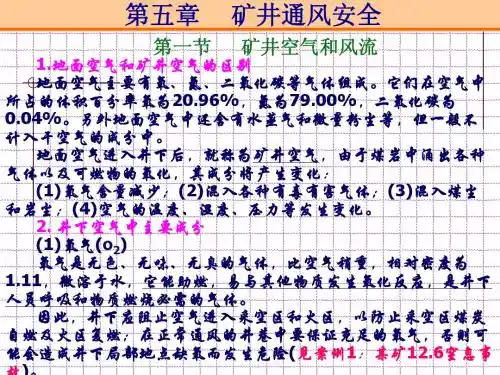 第五章 矿井通风安全
第一节 矿井空气和风流
1.地面空气和矿井空气的区别
地面空气主要有氧、氮、二氧化碳等气体组成。它们在空气中
所占的体积百分率氧为20.96%，氮为79.00%，二氧化碳为
0.04%。另外地面空气中还含有水蒸气和微量粉尘等，但一般不
计入干空气的成分中。
地面空气进入井下后，就称为矿井空气，由于煤岩中涌出各种
气体以及可燃物的氧化，其成分将产生变化：
(1)氧气含量减少；(2)混入各种有毒有害气体；(3)混入煤尘
和岩尘；(4)空气的温度、湿度、压力等发生变化。
2. 井下空气中主要成分
(1)氧气(o₂)
氧气是无色、无味、无臭的气体，比空气稍重，相对密度为
1.11，微溶于水，它能助燃，易与其他物质发生氧化反应，是井下
人员呼吸和物质燃烧必需的气体。
因此，井下应阻止空气进入采空区和火区，以防止采空区煤炭
自燃及火区复燃；在正常通风的井巷中要保证充足的氧气，否则可
能会造成井下局部地点缺氧而发生危险(见案例1：某矿12.6窒息事
故)。